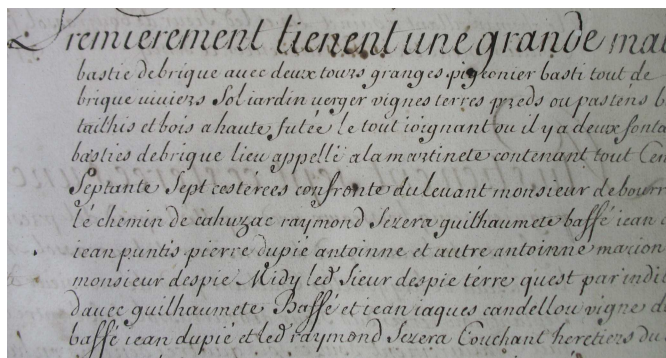 Premierement tienent une grande mai
bastie de brique avec deux tours granges pigeonier basti tout de
brique viviers Sol iardin verger vignes terres preds ou pastens b
taithis et bois a haute futée le tout ioignant ou il y a deux fonta
basties de brique lieu appellé a la martinete contenant tout Cen
Septante Sept cesterées confronte du levant monsieur de bourr
le chemin de cahuzac raymond Sezera guilhaumete baffé iean
iean puntis pierre dupié antoinne et autre antoinne marion
monsieur despie Midy led Sieur despie terre quest par indi
davec guilhaumete Baffé et iean iaques candellou vigne d
baffé iean dupié et led raymond Sezera Couchant heretiers du